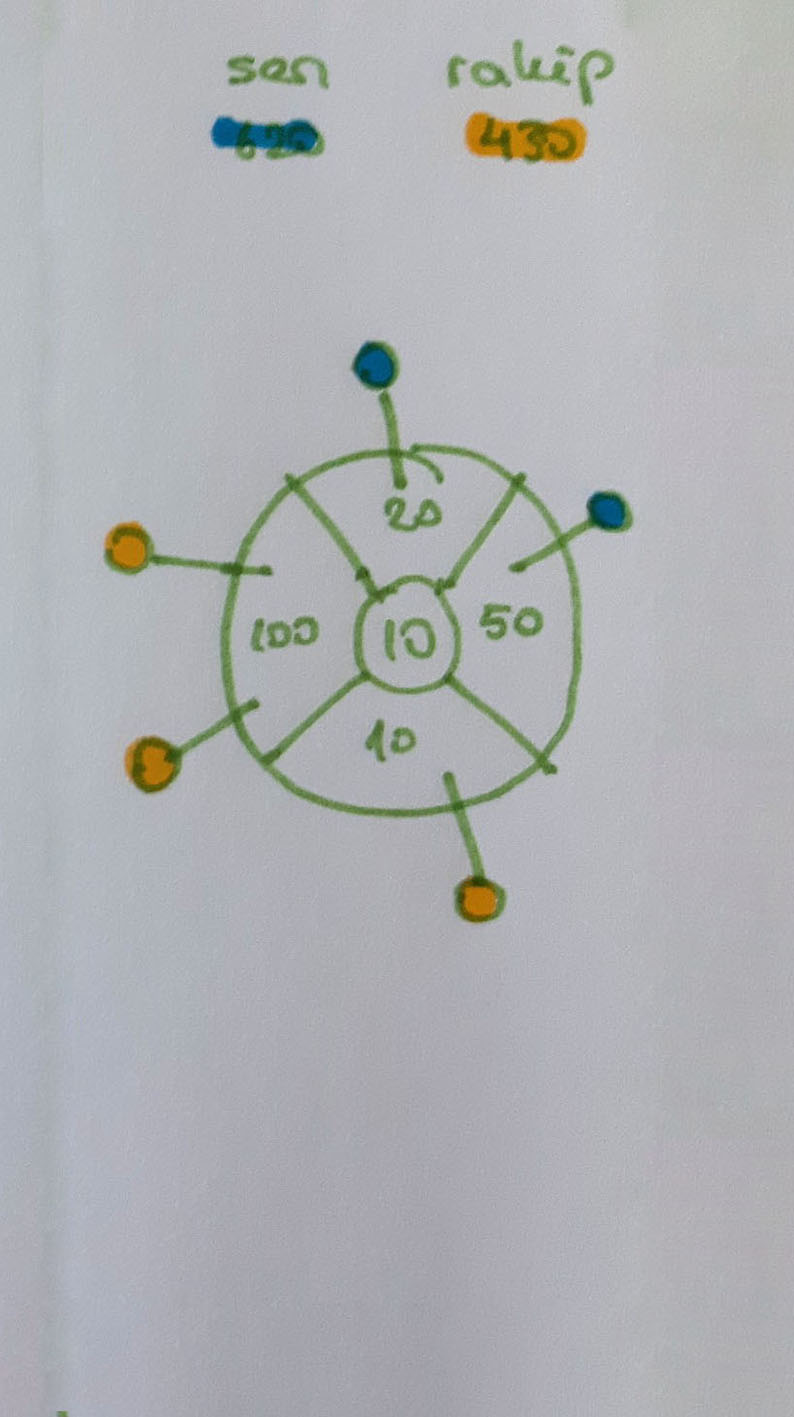 sen rakip
620 430
20
100 10 50
10